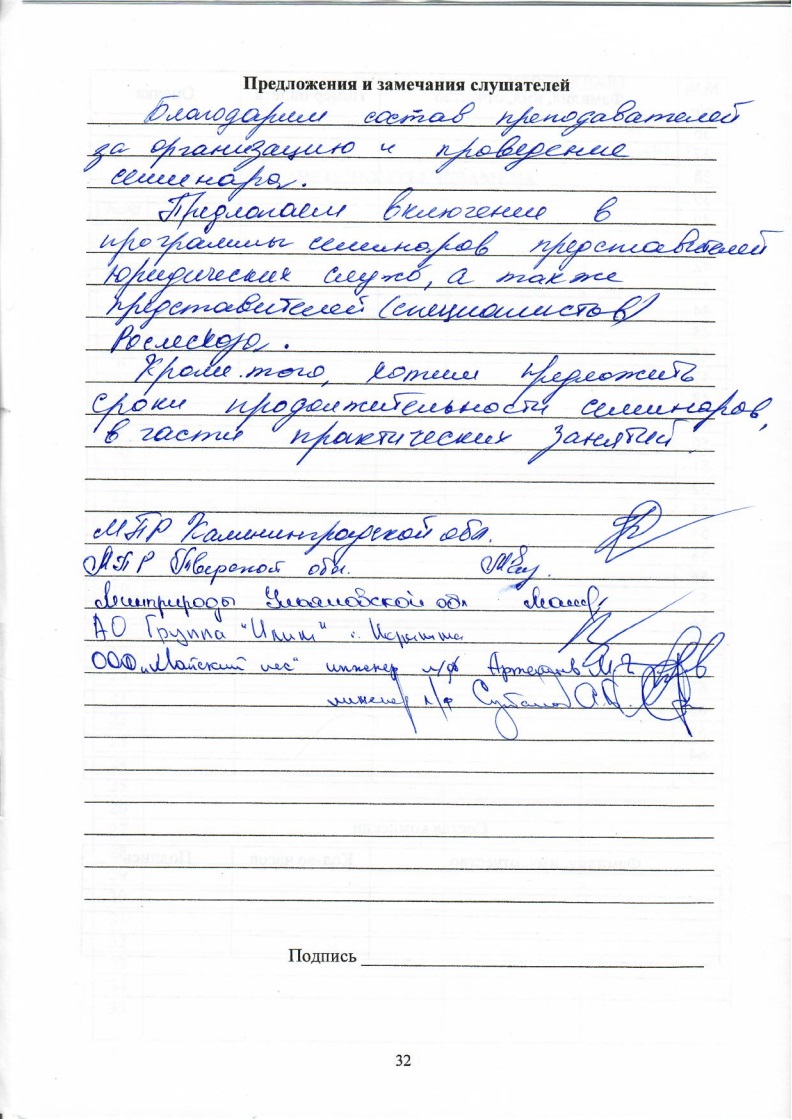 Предложения и замечания слушателей
Благодарим состав преподавателей
за организацию и проведение
семинара.
Предлагаем включение в
программы семинаров представителей
юридических служб, а также
представителей (специалистов)
Рослесхоза.
Кроме того, хотим предложить
сроки продолжительности семинаров,
в части практических занятий.
МПР Калининградской обл.
МПР Тверской обл.
Минприроды Ульяновской обл
АО Группа "Илим" г.
ООО „Майский лес" инженер л/ф
инженер л/ф
Подпись
32